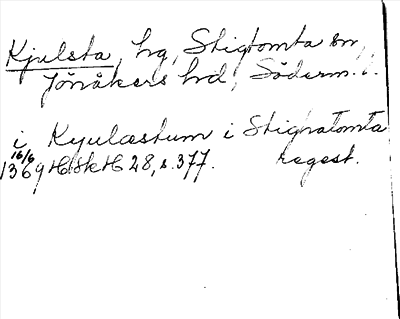 Kjulsta, hg, Stigtomta sn,
Jönåkers hrd, Söderm. l.
i Kyulastum i Stighatomta
16/6
1369 HSH 28, s. 377. regest.